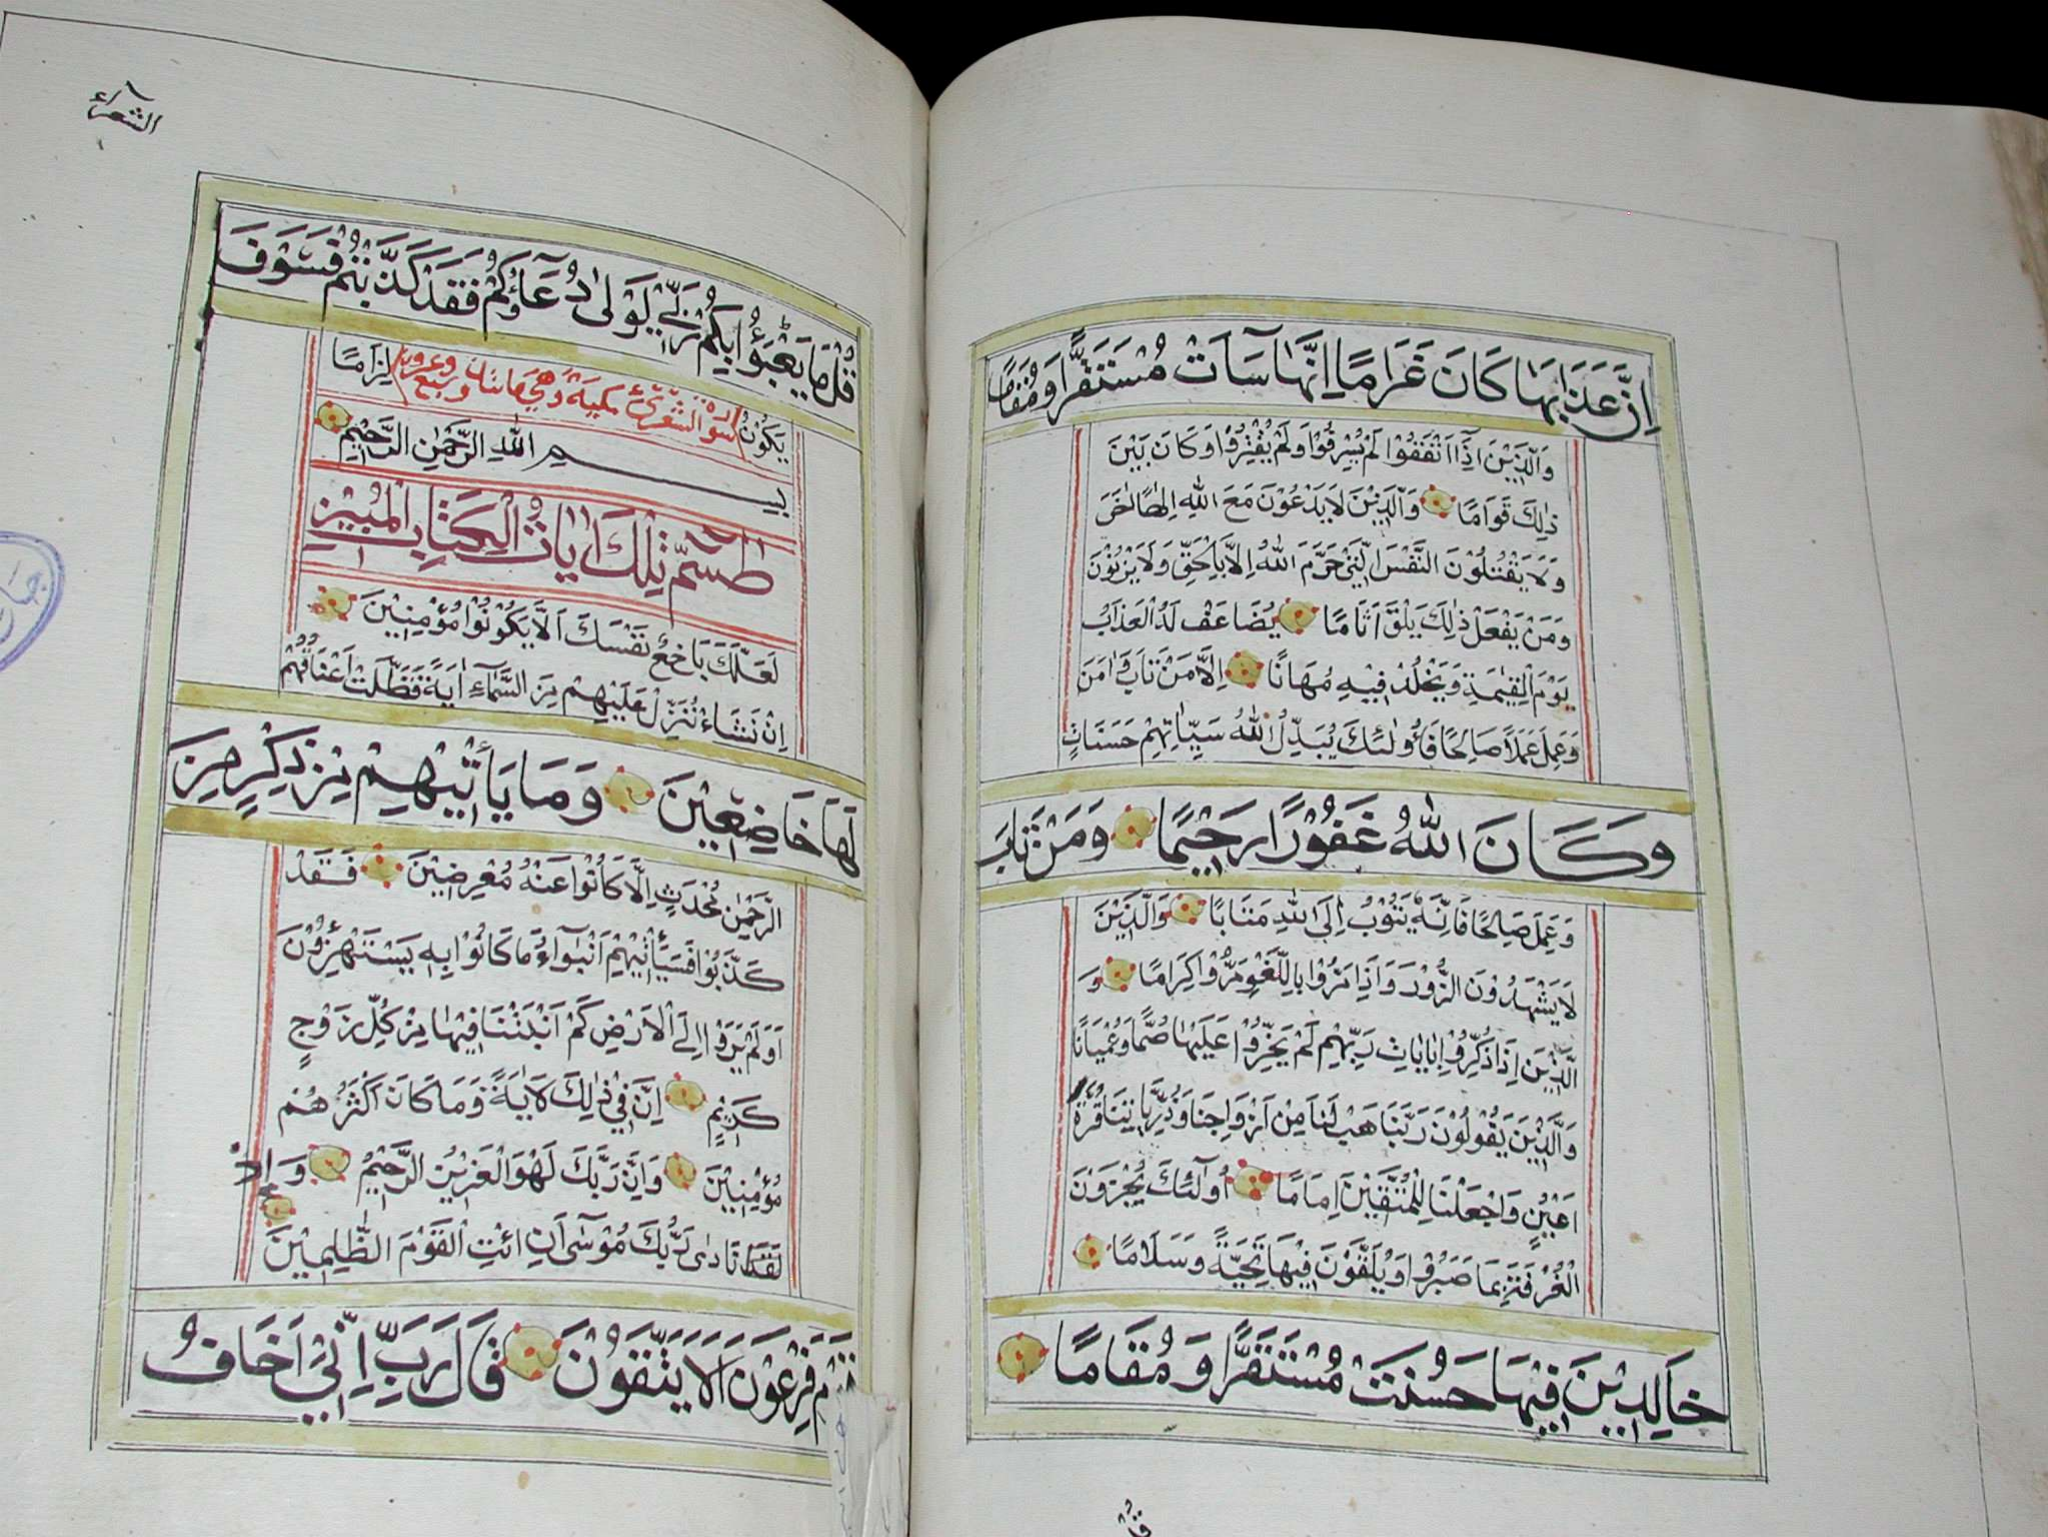 اِنَّ عَذَابَهَا كَانَ غَرَامًا اِنَّهَا سَآءَتْ مُسْتَقَرًّا وَمُقَامًا
وَالَّذِيْنَ اِذَآ اَنْفَقُوْا لَمْ يُسْرِفُوْا وَلَمْ يَقْتِرُوْا وَكَانَ بَيْنَ
ذٰلِكَ قَوَامًا وَالَّذِيْنَ لَا يَدْعُوْنَ مَعَ اللّٰهِ اِلٰهًا اٰخَرَ
وَلَا يَقْتُلُوْنَ النَّفْسَ الَّتِيْ حَرَّمَ اللّٰهُ اِلَّا بِالْحَقِّ وَلَا يَزْنُوْنَ
وَمَنْ يَفْعَلْ ذٰلِكَ يَلْقَ اَثَامًا يُضَاعَفْ لَهُ الْعَذَابُ
يَوْمَ الْقِيٰمَةِ وَيَخْلُدْ فِيْهِ مُهَانًا اِلَّا مَنْ تَابَ وَاٰمَنَ
وَعَمِلَ عَمَلًا صَالِحًا فَاُولٰئِكَ يُبَدِّلُ اللّٰهُ سَيِّاٰتِهِمْ حَسَنَاتٍ
وَكَانَ اللّٰهُ غَفُوْرًا رَحِيْمًا وَمَنْ تَابَ
وَعَمِلَ صَالِحًا فَاِنَّهٗ يَتُوْبُ اِلَى اللّٰهِ مَتَابًا وَالَّذِيْنَ
لَا يَشْهَدُوْنَ الزُّوْرَ وَاِذَا مَرُّوْا بِاللَّغْوِ مَرُّوْا كِرَامًا وَ
الَّذِيْنَ اِذَا ذُكِّرُوْا بِاٰيَاتِ رَبِّهِمْ لَمْ يَخِرُّوْا عَلَيْهَا صُمًّا وَعُمْيَانًا
وَالَّذِيْنَ يَقُوْلُوْنَ رَبَّنَا هَبْ لَنَا مِنْ اَزْوَاجِنَا وَذُرِّيَّاتِنَا قُرَّةَ
اَعْيُنٍ وَاجْعَلْنَا لِلْمُتَّقِيْنَ اِمَامًا اُولٰٓئِكَ يُجْزَوْنَ
الْغُرْفَةَ بِمَا صَبَرُوْا وَيُلَقَّوْنَ فِيْهَا تَحِيَّةً وَسَلَامًا
خَالِدِيْنَ فِيْهَا حَسُنَتْ مُسْتَقَرًّا وَمُقَامًا
قُلْ
الشعرآء
قُلْ مَا يَعْبَؤُا بِكُمْ رَبِّيْ لَوْلَا دُعَآؤُكُمْ فَقَدْ كَذَّبْتُمْ فَسَوْفَ
يَكُوْنُ سورة الشعرآء مكية وهي مائتان وسبع وعشرون لِزَامًا
بِسْمِ اللّٰهِ الرَّحْمٰنِ الرَّحِيْمِ
طٰسٓمّٓ تِلْكَ اٰيَاتُ الْكِتَابِ الْمُبِيْنِ
لَعَلَّكَ بَاخِعٌ نَفْسَكَ اَلَّا يَكُوْنُوْا مُؤْمِنِيْنَ
اِنْ نَشَاْ نُنَزِّلْ عَلَيْهِمْ مِنَ السَّمَآءِ اٰيَةً فَظَلَّتْ اَعْنَاقُهُمْ
لَهَا خَاضِعِيْنَ وَمَا يَأْتِيْهِمْ مِنْ ذِكْرٍ مِنَ
الرَّحْمٰنِ مُحْدَثٍ اِلَّا كَانُوْا عَنْهُ مُعْرِضِيْنَ فَقَدْ
كَذَّبُوْا فَسَيَأْتِيْهِمْ اَنْبٰٓؤُا مَا كَانُوْا بِهٖ يَسْتَهْزِؤُوْنَ
اَوَلَمْ يَرَوْا اِلَى الْاَرْضِ كَمْ اَنْبَتْنَا فِيْهَا مِنْ كُلِّ زَوْجٍ
كَرِيْمٍ اِنَّ فِيْ ذٰلِكَ لَاٰيَةً وَمَا كَانَ اَكْثَرُهُمْ
مُؤْمِنِيْنَ وَاِنَّ رَبَّكَ لَهُوَ الْعَزِيْزُ الرَّحِيْمُ وَاِذْ
نَادٰى رَبُّكَ مُوْسٰٓى اَنِ ائْتِ الْقَوْمَ الظّٰلِمِيْنَ
قَوْمَ فِرْعَوْنَ اَلَا يَتَّقُوْنَ قَالَ رَبِّ اِنِّيْٓ اَخَافُ